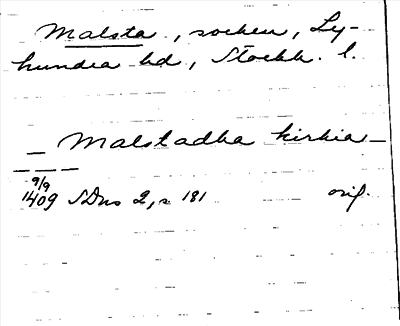 Malsta, socken, Ly-
hundra hd, Stockh. l.
— Malstadha kirkia —
9/9
1409 SDns 2, s 181 orig.